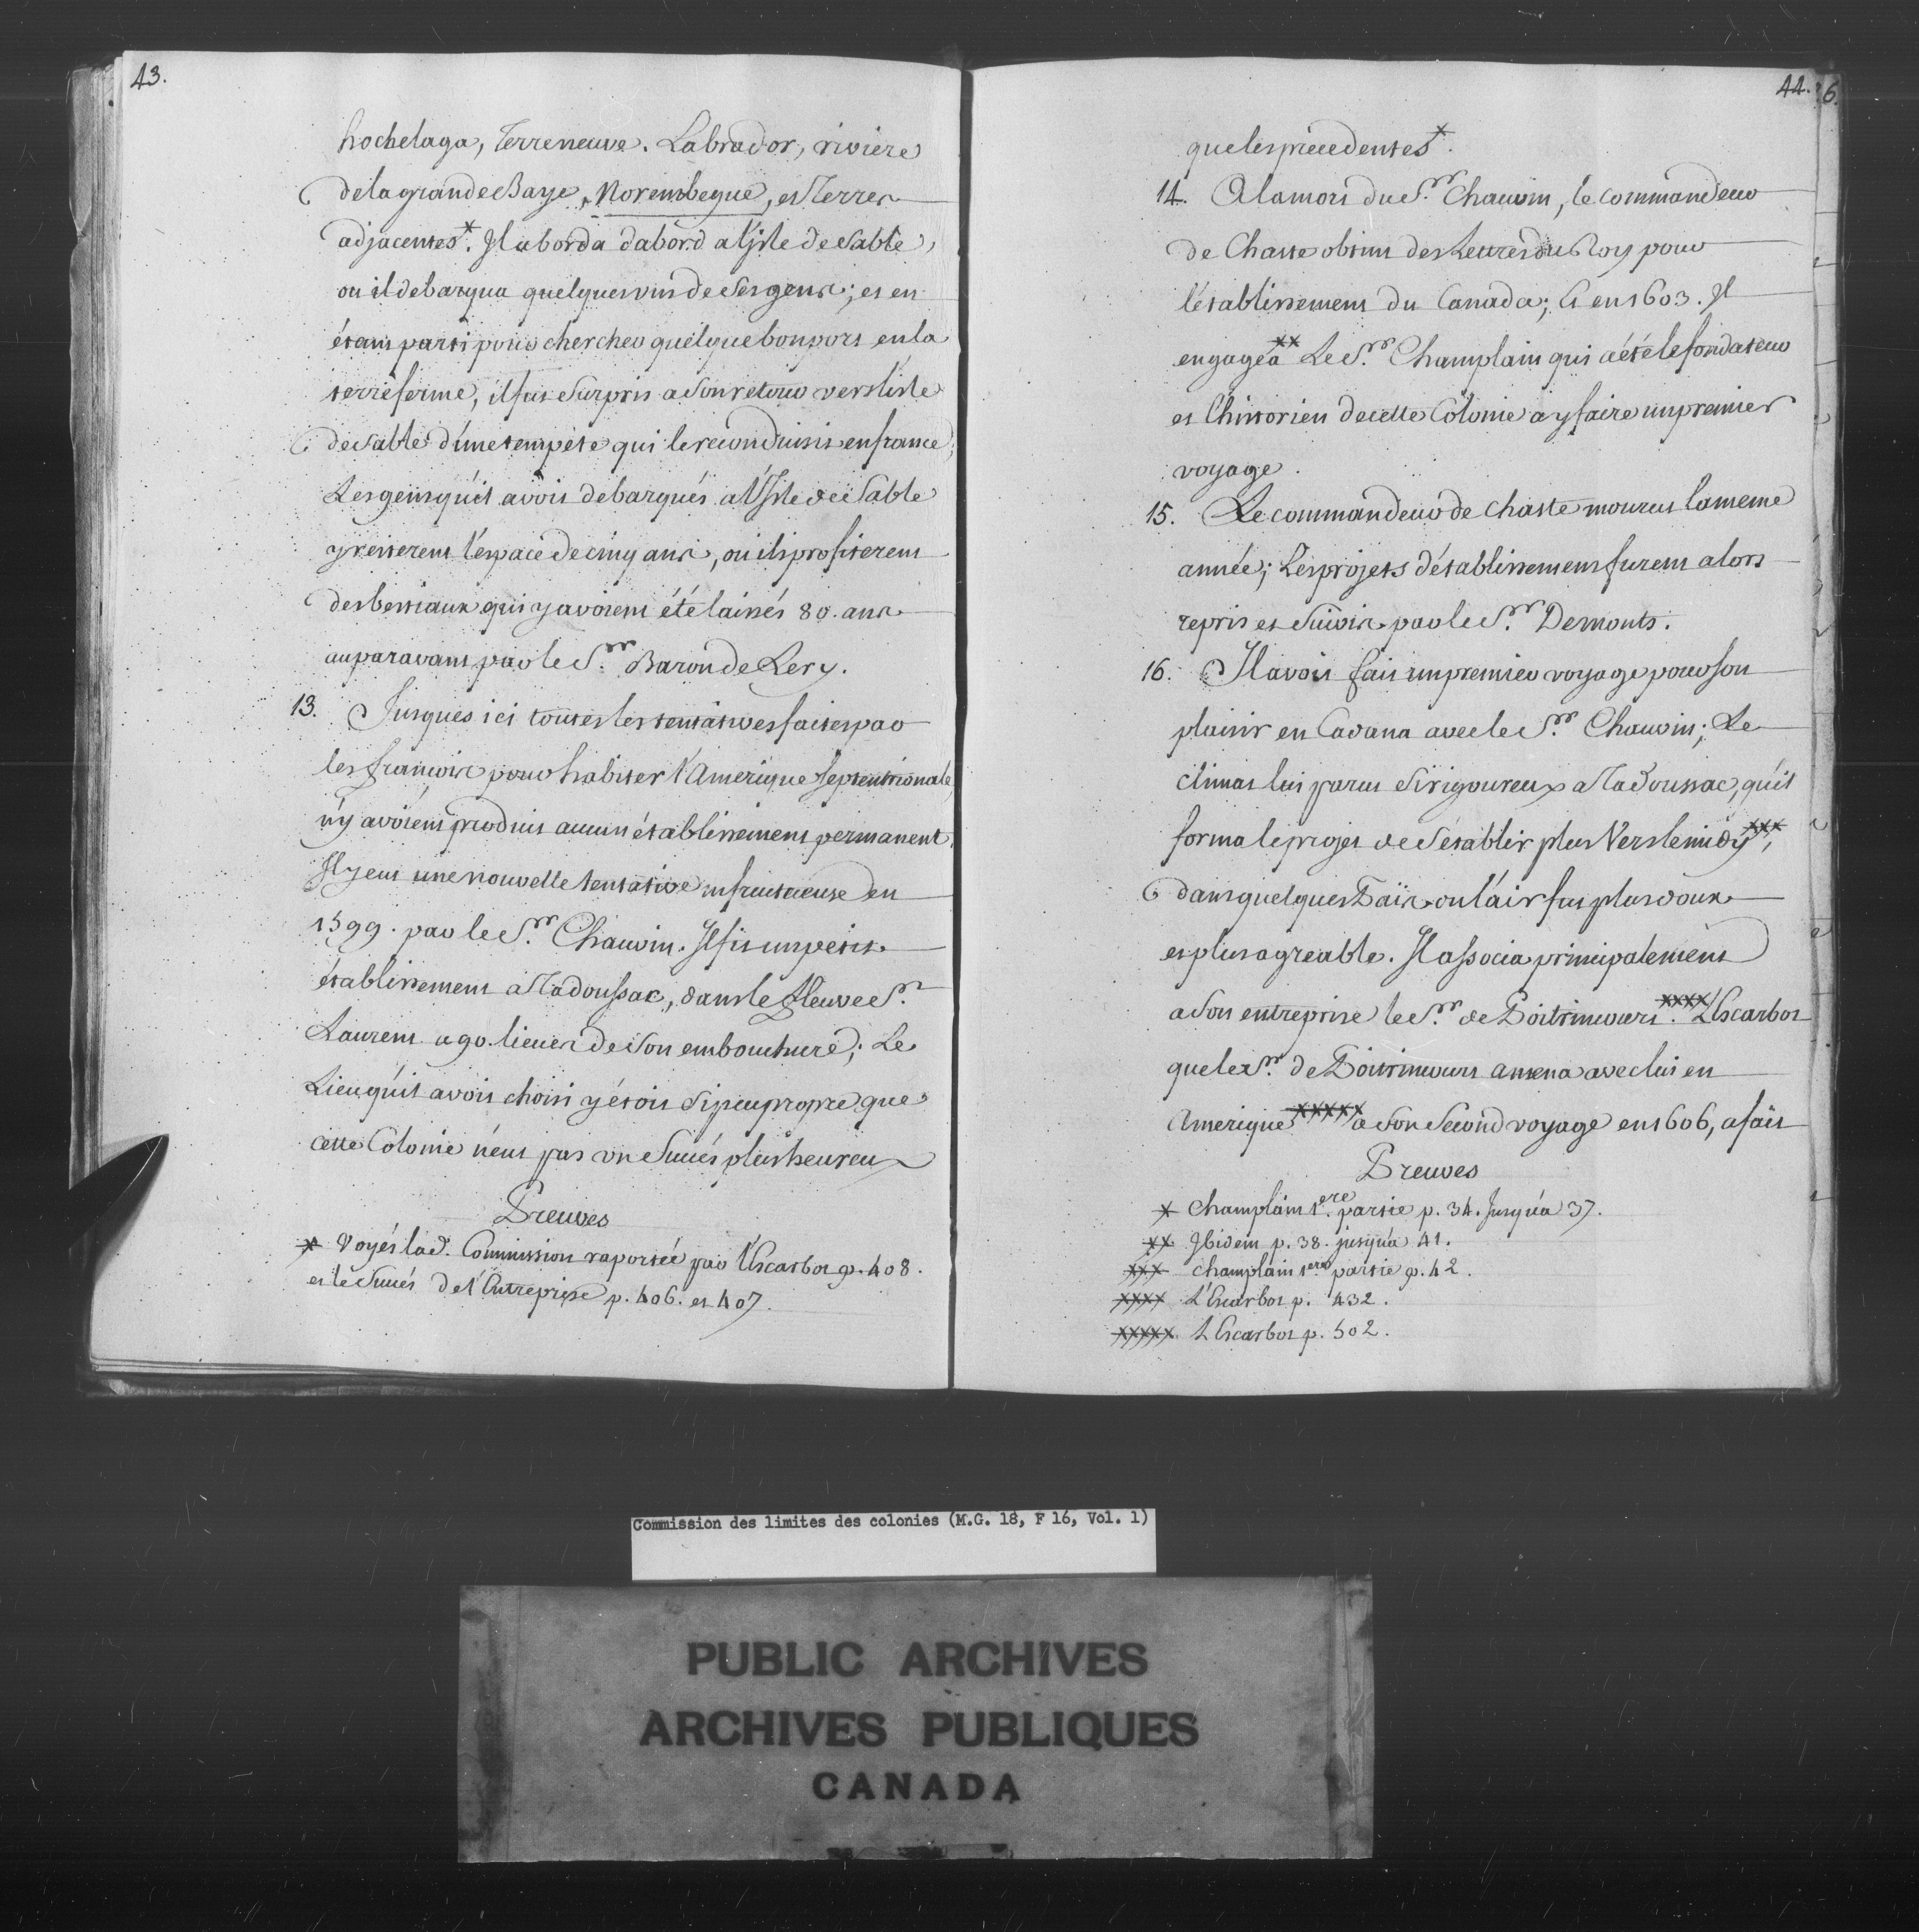 43.
hochelaga, Terreneuve. Labrador, riviere
de la grande Baye, Norembegue, et Terres
adjacentes*. Il aborda dabord a l'jsle de Sable,
ou il debarqua quelques uns de ses gens; et en
étant parti pour chercher quelque bon port en la
terre ferme, il fut surpris a son retour vers l'isle
de Sable d'une tempête qui le reconduisit en france,
Les gens qu'il avoit debarqués a l'Isle de Sable
y resterent l'espace de cinq ans, ou ils profiterent
des bestiaux qui y avoient été laissés 80. ans
auparavant par le S.r Baron de Lery.
13. Jusques ici toutes les tentatives faites par
les françois pour habiter l'Amerique Septentrionale,
n'y avoient produit aucun établissement permanent.
Il y eut une nouvelle tentative infructueuse en
1599. par le S.r Chauvin. Il fit un petit
établissement a Tadoussac, dans le fleuve S.t
Laurent a 90. lieues de son embouchure; Le
Lieu qu'il avoit choisi y étoit si peu propre que
cette Colonie n'eut pas un succés plus heureux
Preuves
* Voyés lad. Commission raportée par l'Escarbot p. 408.
et le Succés de l'Entreprise p. 406. et 407.
44. 6.
que les précédentes*.
14. A la mort du S.r Chauvin, le commandeur
de Chaste obtint des Lettres du Roy pour
l'établissement du Canada; Et en 1603. Il
engagea xx Le S.r Champlain qui a été le fondateur
et l'historien de cette Colonie a y faire un premier
voyage.
15. Le commandeur de chaste mourut la meme
année; Les projets d'établissement furent alors
repris et suivis par le S.r Demonts.
16. Il avoit fait un premier voyage pour son
plaisir en Cavana avec le S.r Chauvin; Le
climat lui parut si rigoureux a Tadoussac, qu'il
forma le projet de s'établir plus Vers le midy xxx,
dans quelques Païs ou l'air fut plus doux
et plus agreable. Il associa principalement
a son entreprise le S.r de Poitrincourt. xxxx L'Escarbot
que le S.r de Poitrincourt amena avec lui en
Amerique xxxxx a son second voyage en 1606, a fait
Preuves
x Champlain 1.ere partie p. 34. Jusqu'a 37.
xx Ibidem p. 38. jusqu'a 41.
xxx champlain 1.ere partie p. 42.
xxxx L'Escarbot p. 432.
xxxxx L'Escarbot p. 502.
Commission des limites des colonies (M.G. 18, F 16, Vol. 1)
PUBLIC ARCHIVES
ARCHIVES PUBLIQUES
CANADA